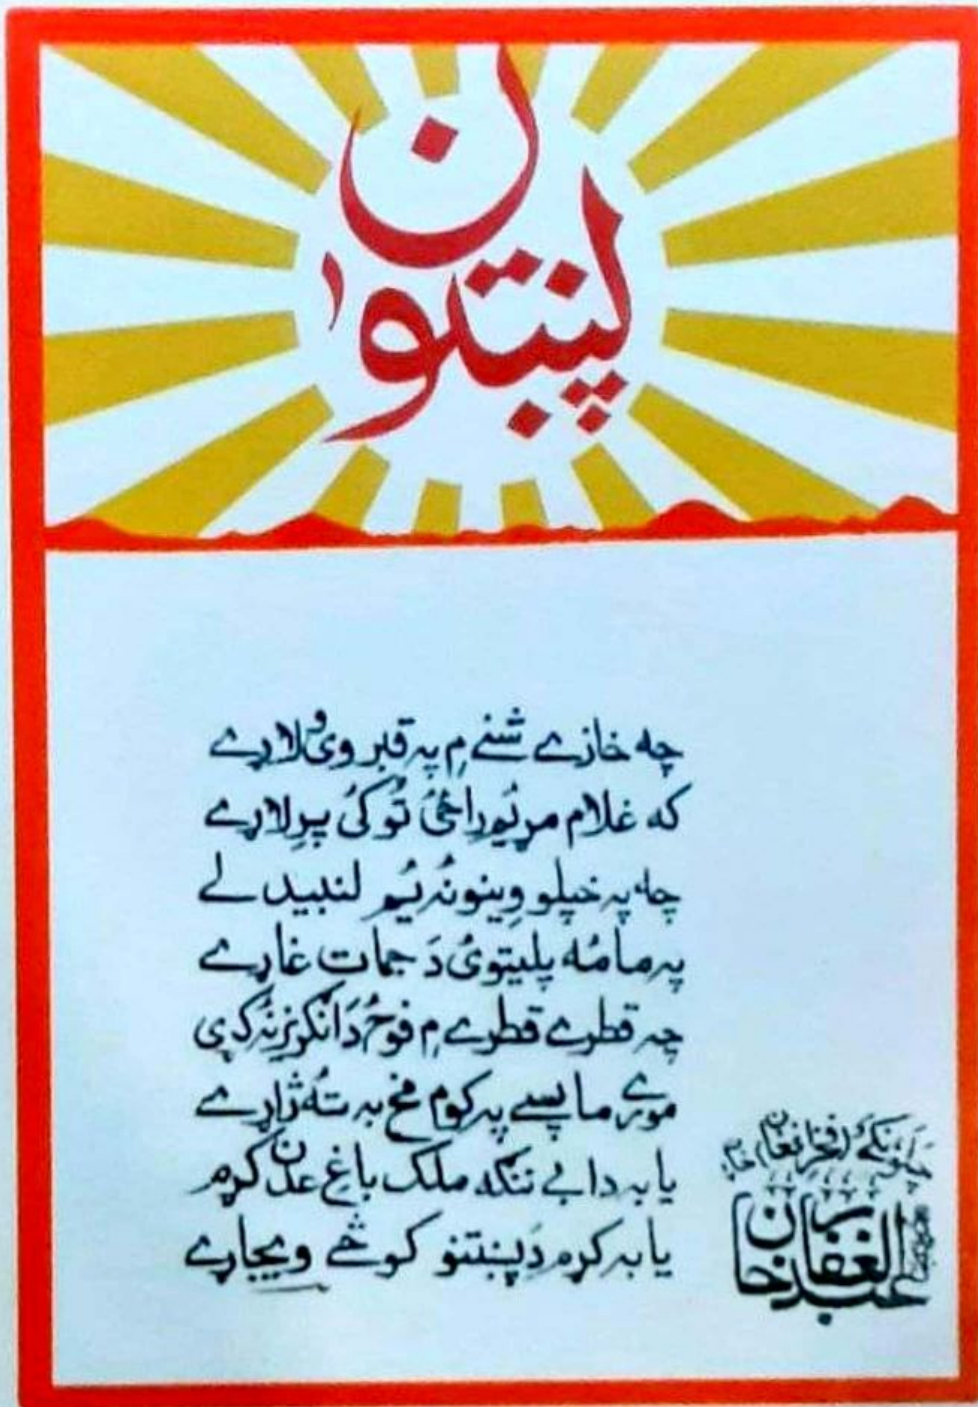 پښتون
چه خازے شنے مِ په قبر وی ولاړے
که غلام مړ یُم راځیٔ تُوکیٔ پرِ لاړے
چه په خپلو وِینو نهٔ یُم لنبیدلے
په ما مهٔ پلیتویٔ دَ جمات غاړے
چه قطرے قطرے مِ فوځ دَ انګریز نهٔ کړی
مورے ما پسے په کوم مخ به تهٔ ژاړے
یا به دا بے ننګه ملک باغِ عدن کړم
یا به کړم دَ پښتنو کوڅے ویجاړے
عبدالغفار خان